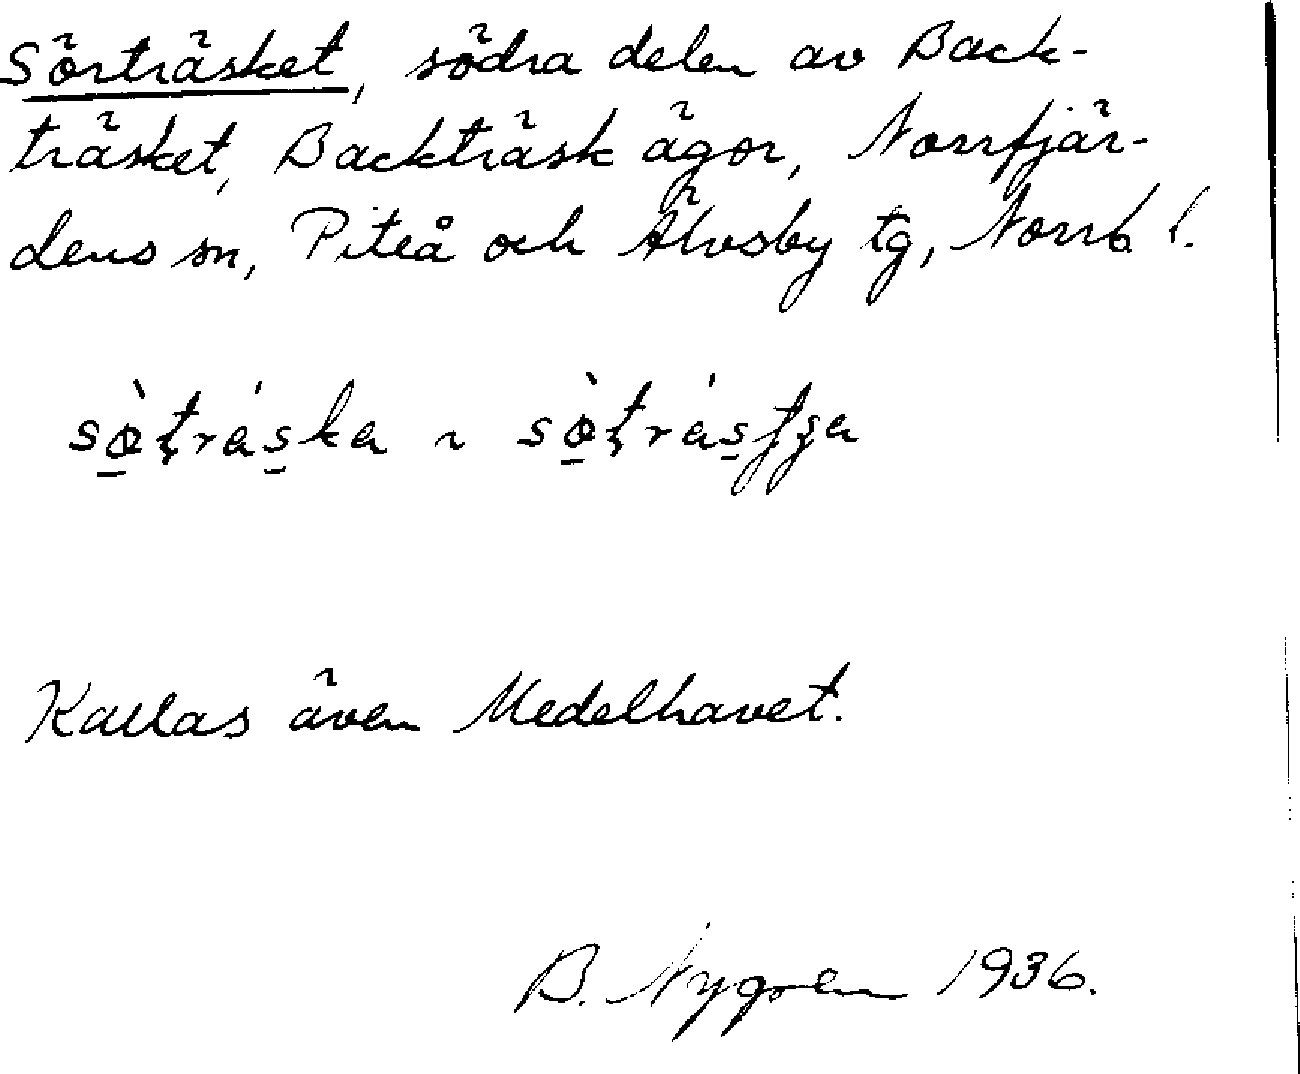 Sörträsket, södra delen av Back-
träsket, Backträsk ägor, Norrfjär-
dens sn, Piteå och Älvsby tg, Norrb. l.
Kallas även Medelhavet.
B. Nygren 1936.